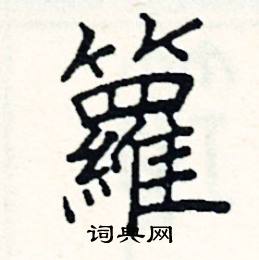 籮
词典网